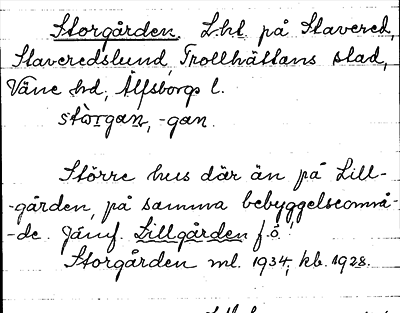 Storgården. Lht på Slavered,
Slaveredslund, Trollhättans stad,
Väne hd, Älfsborgs l.
stòrgaɳ, -gan.
Större hus där än på Lill-
-gården, på samma bebyggelseområ-
-de. Jämf. Lillgården f.ö.
Storgården ml. 1934, kb. 1928.